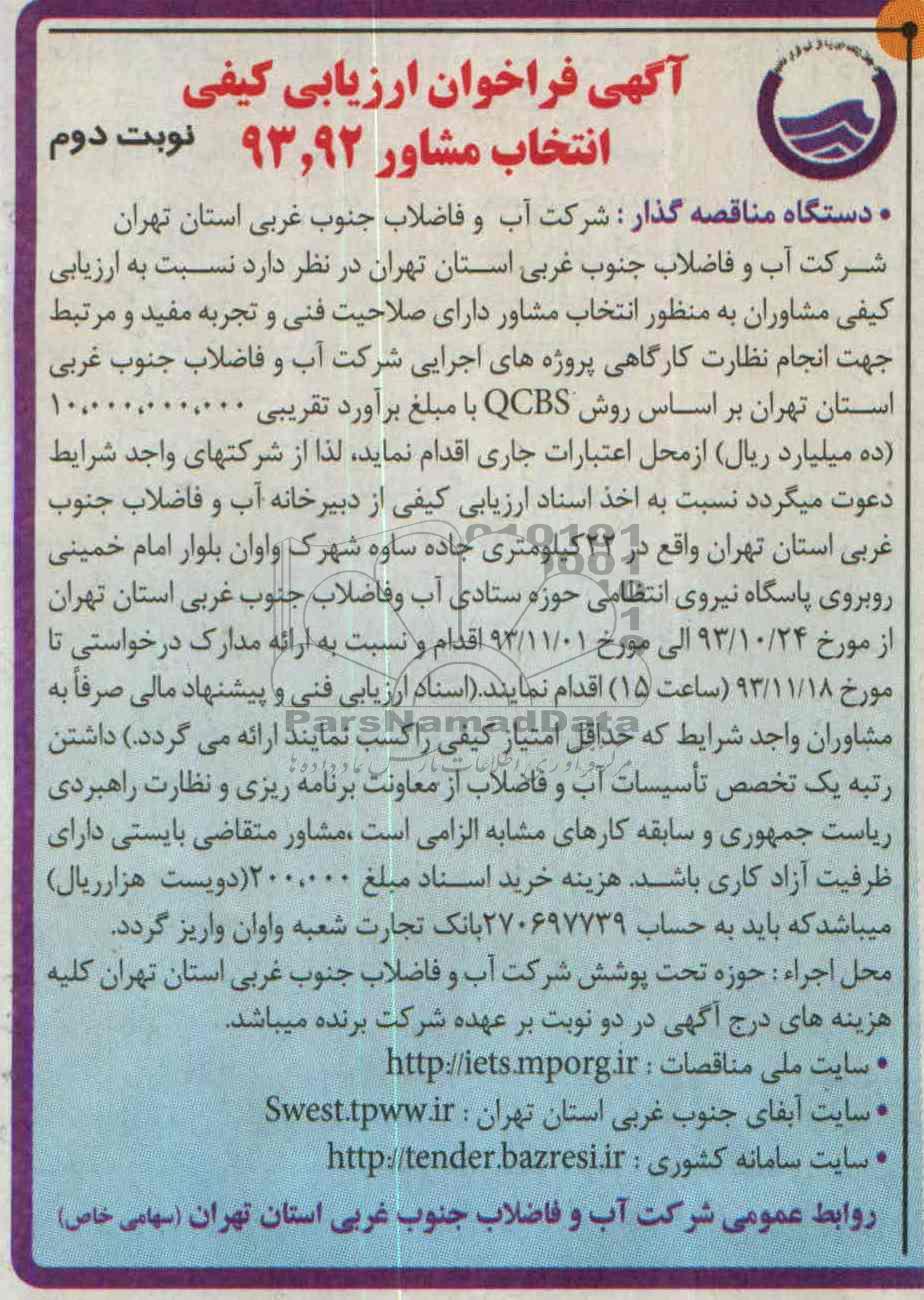 آگهی فراخوان ارزیابی کیفی
انتخاب مشاور ۹۳,۹۲
نوبت دوم
• دستگاه مناقصه گذار : شرکت آب و فاضلاب جنوب غربی استان تهران
شرکت آب و فاضلاب جنوب غربی استان تهران در نظر دارد نسبت به ارزیابی
کیفی مشاوران به منظور انتخاب مشاور دارای صلاحیت فنی و تجربه مفید و مرتبط
جهت انجام نظارت کارگاهی پروژه های اجرایی شرکت آب و فاضلاب جنوب غربی
استان تهران بر اساس روش QCBS با مبلغ برآورد تقریبی ۱۰،۰۰۰،۰۰۰،۰۰۰
(ده میلیارد ریال) ازمحل اعتبارات جاری اقدام نماید، لذا از شرکتهای واجد شرایط
دعوت میگردد نسبت به اخذ اسناد ارزیابی کیفی از دبیرخانه آب و فاضلاب جنوب
غربی استان تهران واقع در ۲۲کیلومتری جاده ساوه شهرک واوان بلوار امام خمینی
روبروی پاسگاه نیروی انتظامی حوزه ستادی آب وفاضلاب جنوب غربی استان تهران
از مورخ ۹۳/۱۰/۲۴ الی مورخ ۹۳/۱۱/۰۱ اقدام و نسبت به ارائه مدارک درخواستی تا
مورخ ۹۳/۱۱/۱۸ (ساعت ۱۵) اقدام نمایند.(اسناد ارزیابی فنی و پیشنهاد مالی صرفاً به
مشاوران واجد شرایط که حداقل امتیاز کیفی راکسب نمایند ارائه می گردد.) داشتن
رتبه یک تخصص تأسیسات آب و فاضلاب از معاونت برنامه ریزی و نظارت راهبردی
ریاست جمهوری و سابقه کارهای مشابه الزامی است ،مشاور متقاضی بایستی دارای
ظرفیت آزاد کاری باشد. هزینه خرید اسناد مبلغ ۲۰۰،۰۰۰(دویست هزارریال)
میباشدکه باید به حساب ۲۷۰۶۹۷۷۳۹بانک تجارت شعبه واوان واریز گردد.
محل اجراء : حوزه تحت پوشش شرکت آب و فاضلاب جنوب غربی استان تهران کلیه
هزینه های درج آگهی در دو نوبت بر عهده شرکت برنده میباشد.
• سایت ملی مناقصات : http://iets.mporg.ir
• سایت آبفای جنوب غربی استان تهران : Swest.tpww.ir
• سایت سامانه کشوری : http://tender.bazresi.ir
روابط عمومی شرکت آب و فاضلاب جنوب غربی استان تهران (سهامی خاص)
ParsNamadData